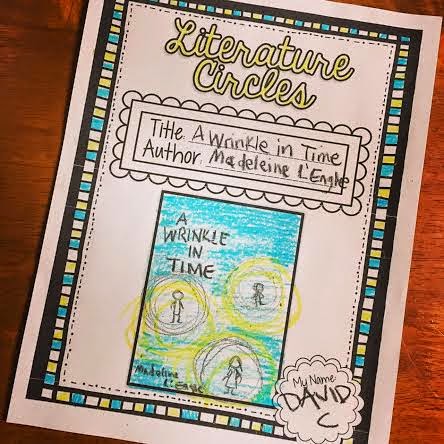 Literature
Circles
Title: A Wrinkle in Time
Author Madeleine L'Engle
A
WRINKLE
IN
TIME
Madeline
L'Engle
My Name
DAVID
C